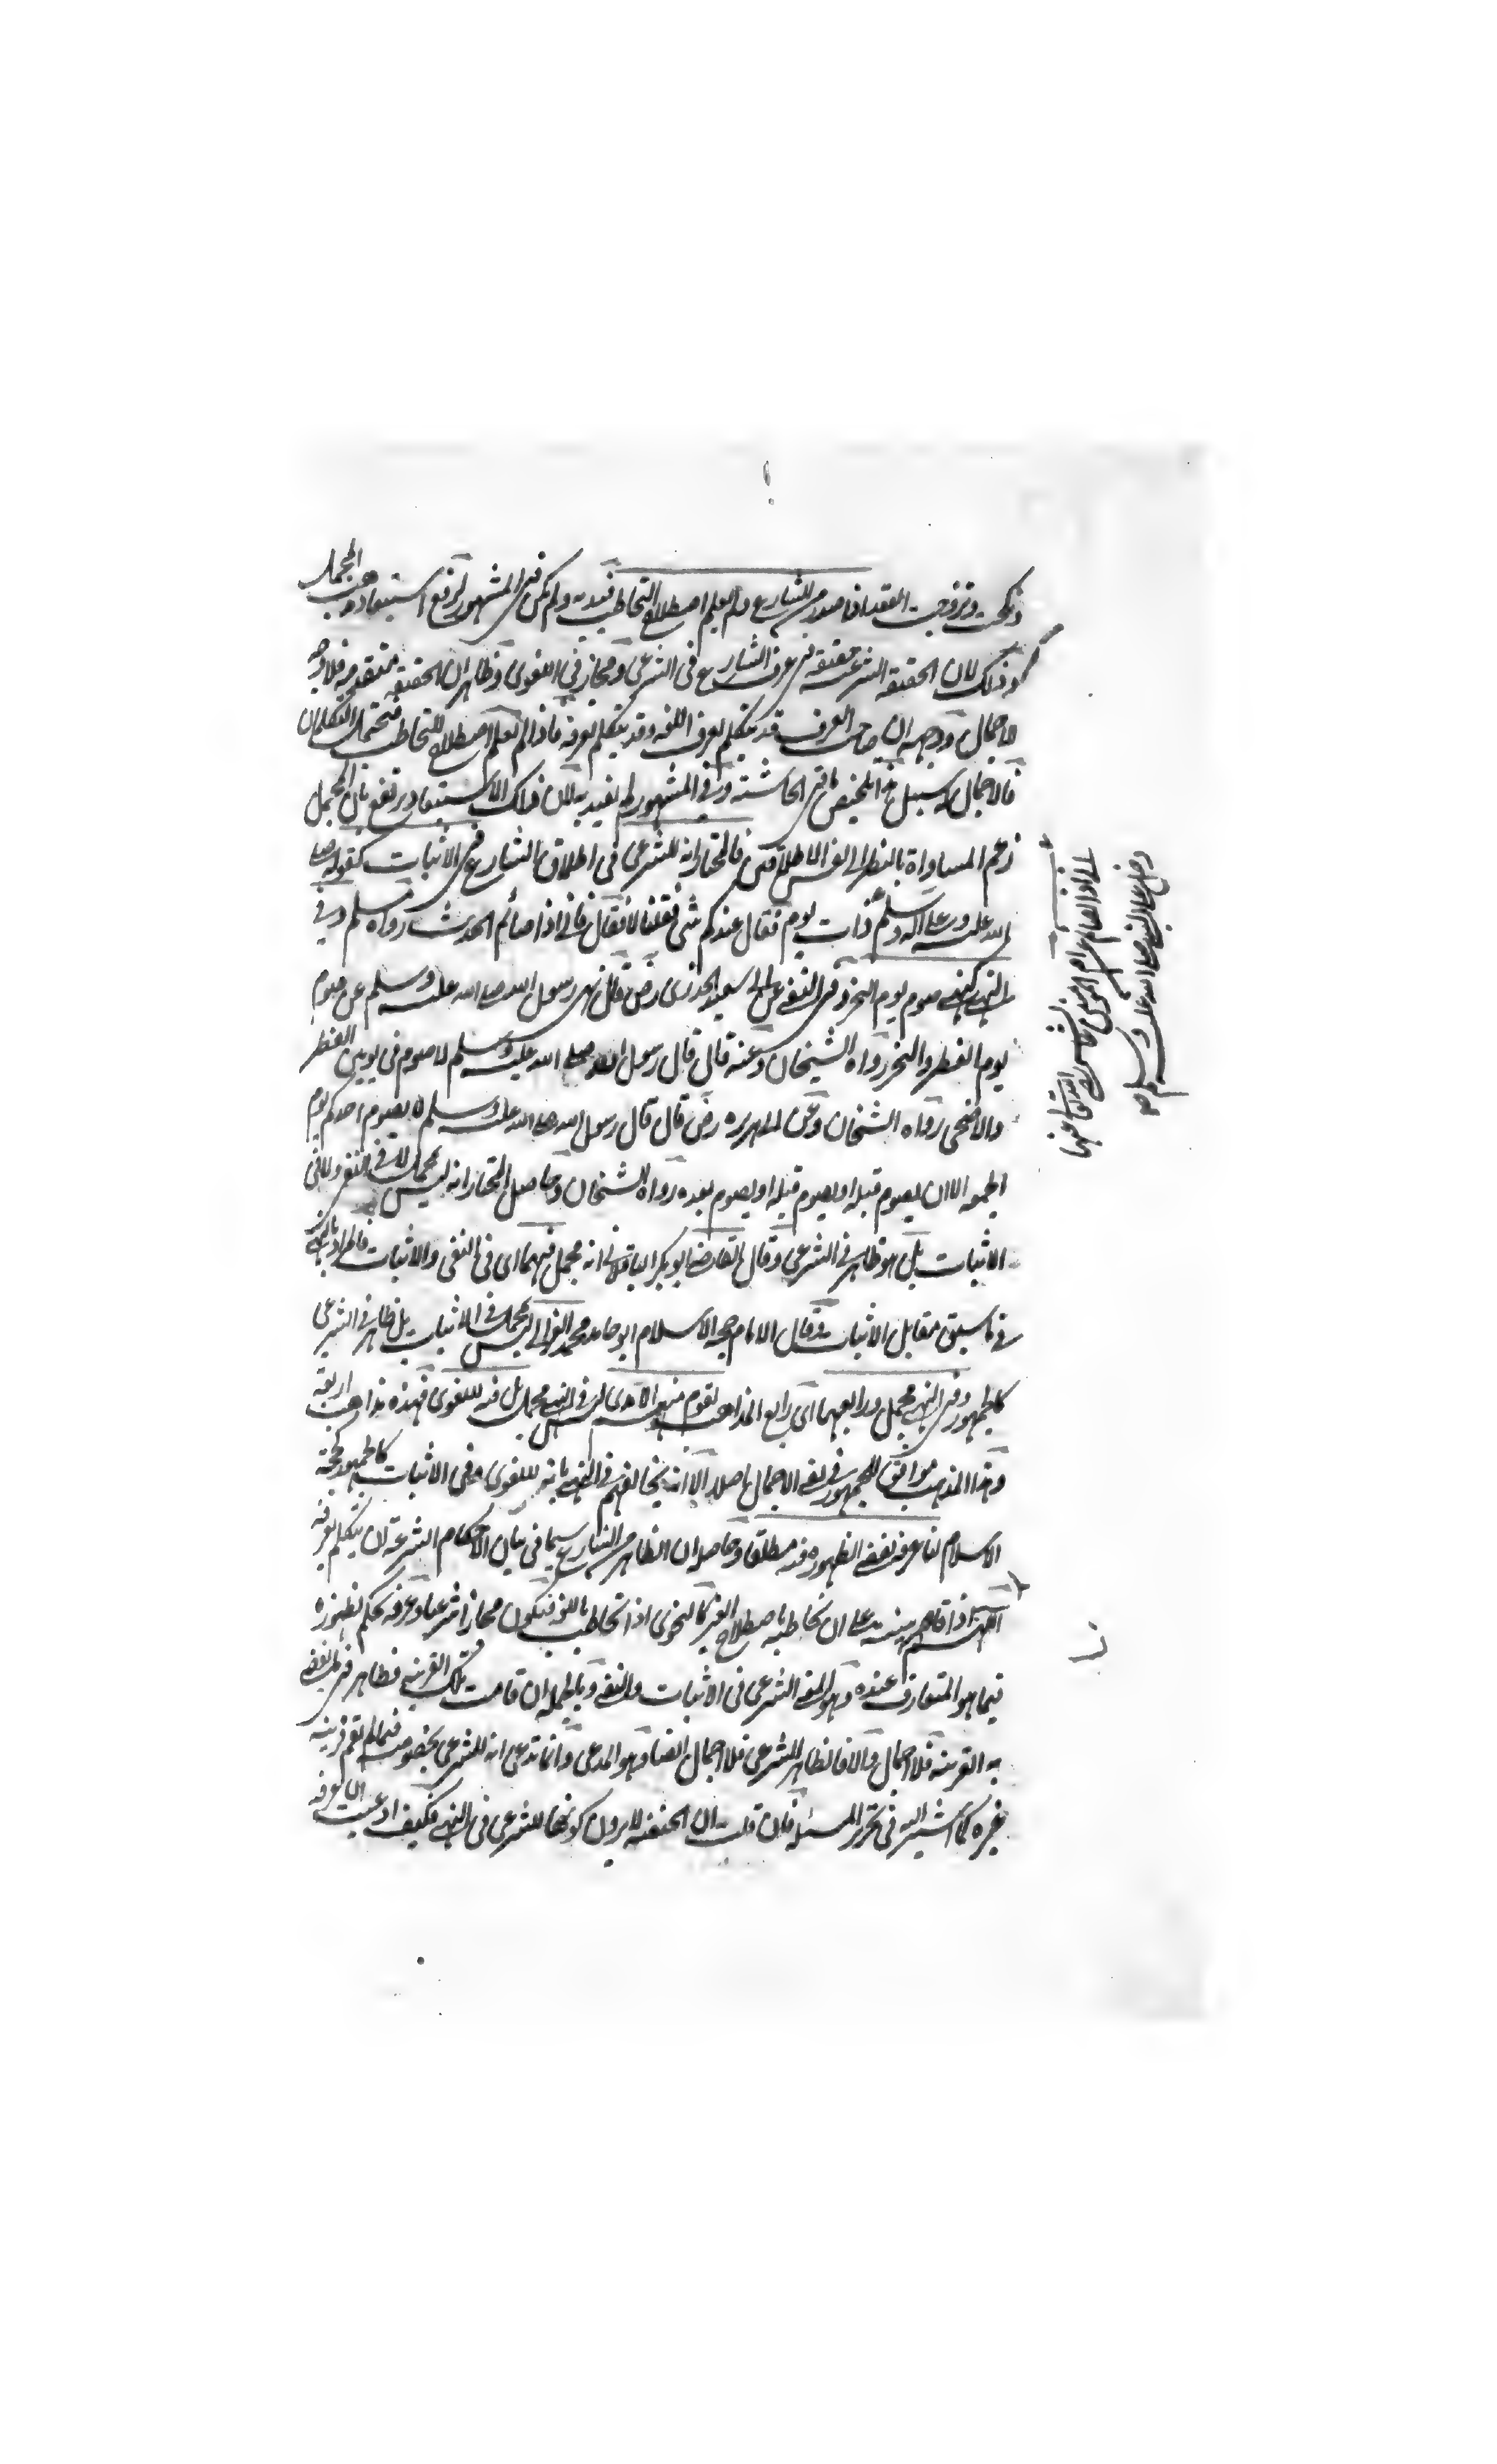 ونكحت وتزوجت العقد اذا صدر من الشارع ولم يعلم اصطلاح التخاطب قيد به ولم يكن في المشهور لرفع استبعاد مذهب المجمل
وذلك لان الحقيقة الشرعية حقيقة في عرف الشارع في الشرعي ومجاز في اللغوي وظاهر ان الحقيقة متقدمة فلا وجه
لاجمال ووجهه ان صاحب العرف قد يتكلم بعرف اللغة وقد يتكلم بعرفه فاذا لم يعلم اصطلاح التخاطب فتحتمل التكلم ان
فالاجمال له سبيل هذا تلخيص ما في الحاشية وفي المشهور لم يقيد به لان ذلك الاستبعاد يرتفع بان المجمل
زعم المساواة بالنظر الى نفس الاطلاقين فالمختار انه للشرعي في اطلاق الشارع في الاثبات كقوله صلى
الله عليه وعلى اله وسلم ذات يوم فقال عندكم شئ فقلنا لا فقال فاني اذا صائم الحديث رواه مسلم وفي
النهي كنهي صوم يوم النحر وفي النفي عن ابي سعيد الخدري رض قال نهى رسول الله صلى الله عليه وسلم عن صوم
يوم الفطر والنحر رواه الشيخان وعنه قال قال رسول الله صلى الله عليه وسلم لا صوم في يومين الفطر
والاضحى رواه الشيخان وعن ابي هريرة رض قال قال رسول الله صلى الله عليه وسلم لا يصوم احدكم يوم
الجمعة الا ان يصوم قبله او يصوم بعده رواه الشيخان وحاصل المختار انه ليس بمجمل لا في النفي ولا في
الاثبات بل هو ظاهر في الشرعي وقال القاضي ابو بكر الباقلاني انه مجمل فيهما اى في النفي والاثبات فالمراد بالنهي
في ما سبق مقابل الاثبات وقال الامام حجة الاسلام ابو حامد محمد الغزالي ليس بمجمل في الاثبات بل ظاهر في الشرعي
كالجمهور وفي النهي مجمل ورابعها اى رابع المذاهب لقوم منهم الآمدي ليس في النهي مجمل بل فيه للغوي فهذه مذاهب اربعة
وهذا المذهب موافق للجمهور في نفي الاجمال اصلا الا انه يخالفهم في النهي بانه للغوي وفي الاثبات كالجمهور كحجة
الاسلام لنا عرفه يقضي الظهوره فيه مطلقا وحاصله ان الظاهر من الشارع سيما في بيان الاحكام الشرعية ان يتكلم بعرفه
اللهم الا اذا قام قرينة على ان تخاطبه باصطلاح الغير كالنحوي اذا تخاطب باللغة فيكون مجازا شرعيا وعرفه يحكم بظهوره
فيما هو المتعارف عنده وهو المعنى الشرعي في الاثبات والنفي وبالجملة ان قامت تلك القرينة فظاهر في ما يقضي
به القرينة فلا اجمال والا فالظاهر للشرعي فلا اجمال ايضا وهو المدعى وانما ندعي انه للشرعي بخصوصه فيما لم تقم قرينة
غيره كما اشير اليه في تحرير المسئلة فان قلت ان الحنفية لا يرون كونها للشرعي في النهي فكيف ادعيت ان عرفه
دخل على النبي صلى الله عليه وسلم